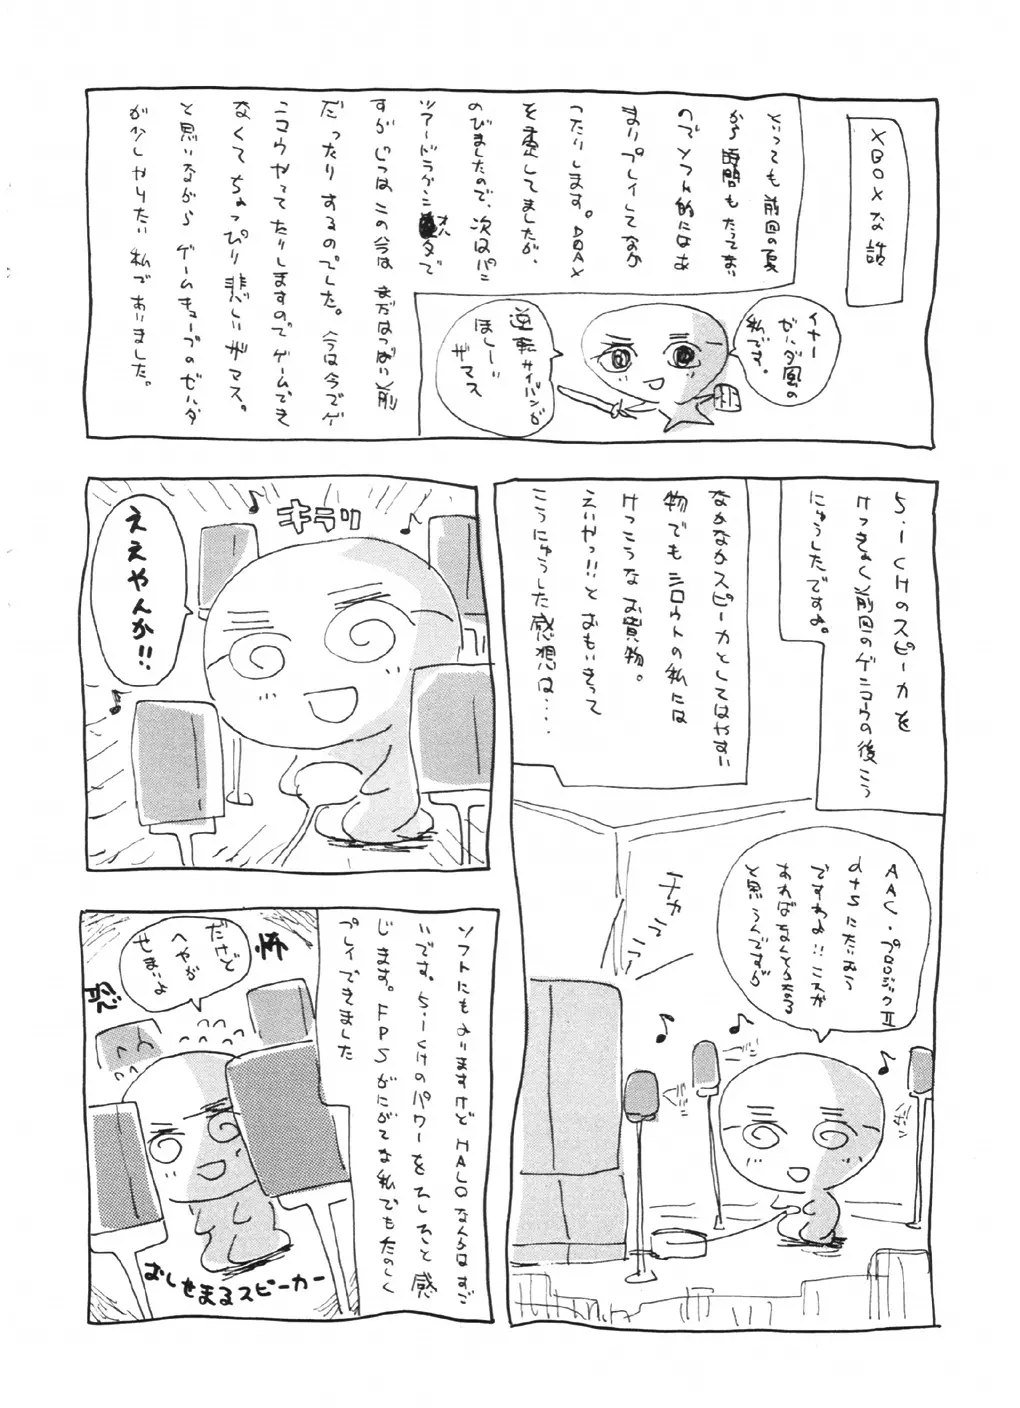 XBOXな話
といっても前回の夏
から時間もたってまい
のでソフト的にはあ
まりプレイしてなか
ったりします。DOAX
を楽ししてましたが、
のびましたので、次はパン
ツァードラグーンオルタで
すがじつはこの今はまだはつばい前
だったりするのでした。今は今でゲ
ニコウやってたりしますのでゲームでき
なくてちょっぴり悲しいザマス。
と思いながらゲームキューブのゼルダ
が少しやりたい私でありました。
イナー
ゼルダ風の
私です。
逆転サイバンが
ほしーい
ザマス
5.1CHのスピーカを
けっきょく前回のゲニコウの後こう
にゅうしたですよ。
なかなかスピーカとしてはやすい
物でもシロウトの私には
けっこうなお買物。
えいやっ!!とおもいきって
こうにゅうした感想は…
AAC・プロロジックⅡ
dtsにたいおう
ですわよ!!これが
あればなんでもなる
と思うんですか
チカッ
キラリ
ええやんか!!
ソフトにもよりますけどHALOなんかはすご
いです。5.1CHのパワーをひしひしと感
じます。FPSがにがてな私でもたのしく
プレイできました
だけど
へやが
せまいよ
恐
怖
おしせまるスピーカー